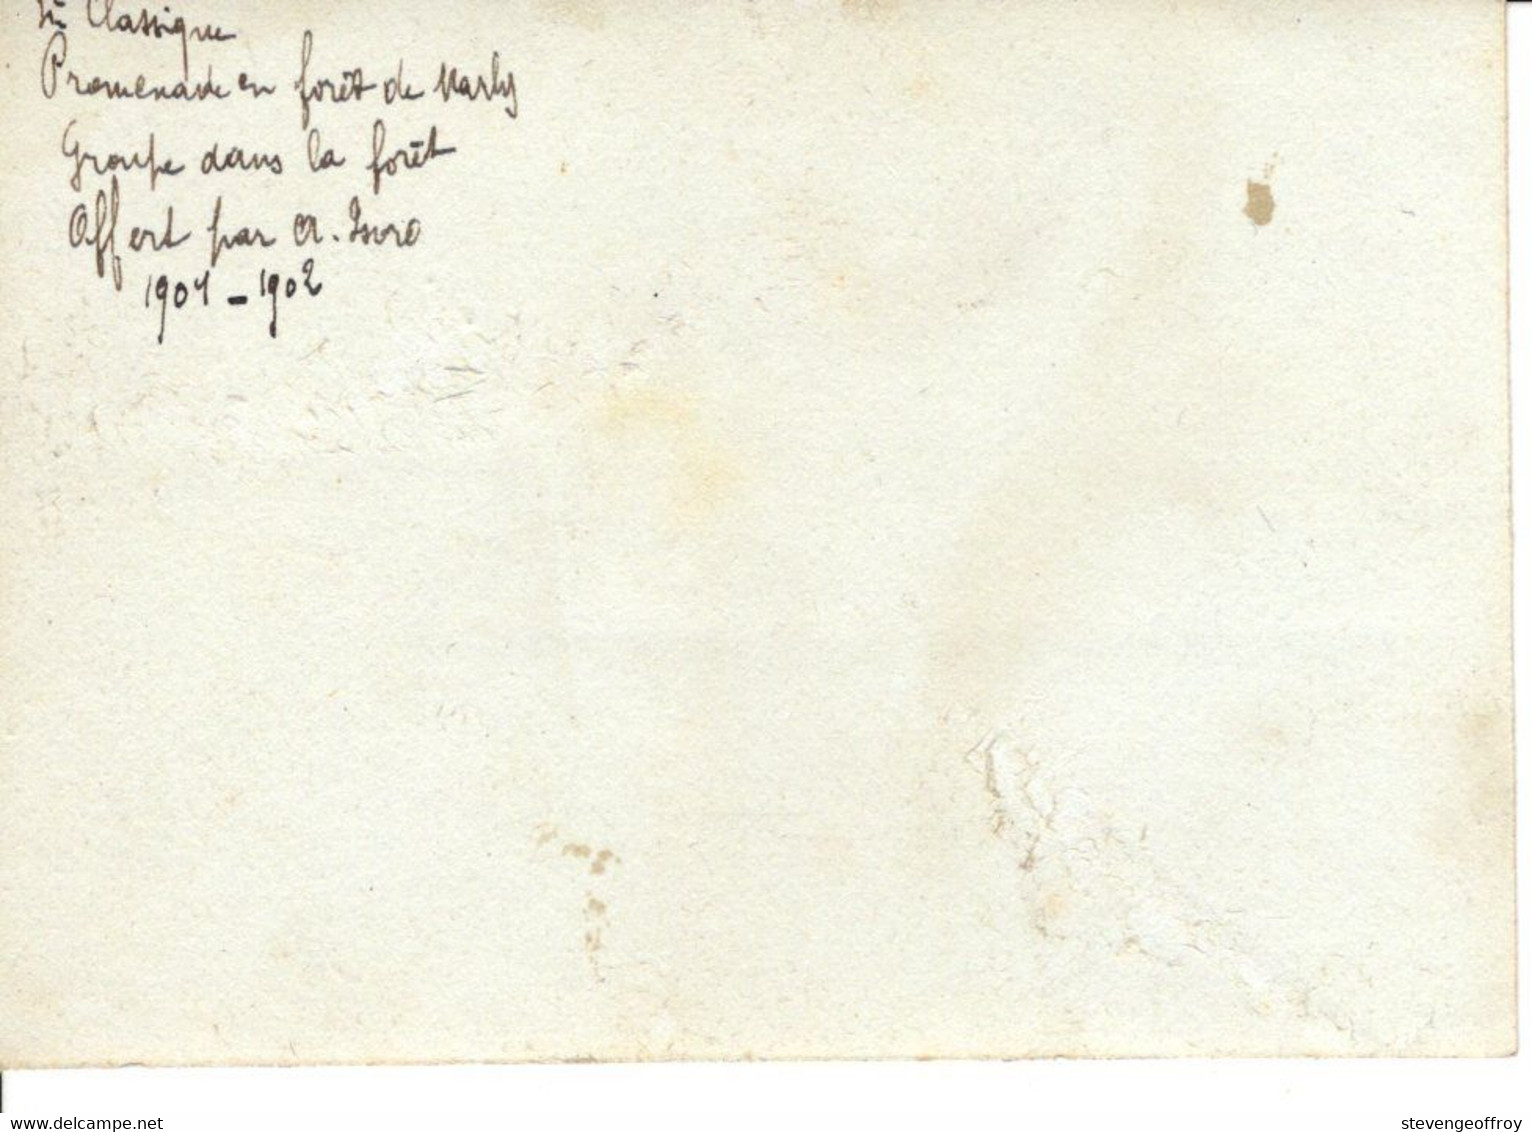 Classique
Promenade en forêt de Marly
Groupe dans la forêt
Offert par A. Isoro
1901 - 1902
www.delcampe.net
stevengeoffroy